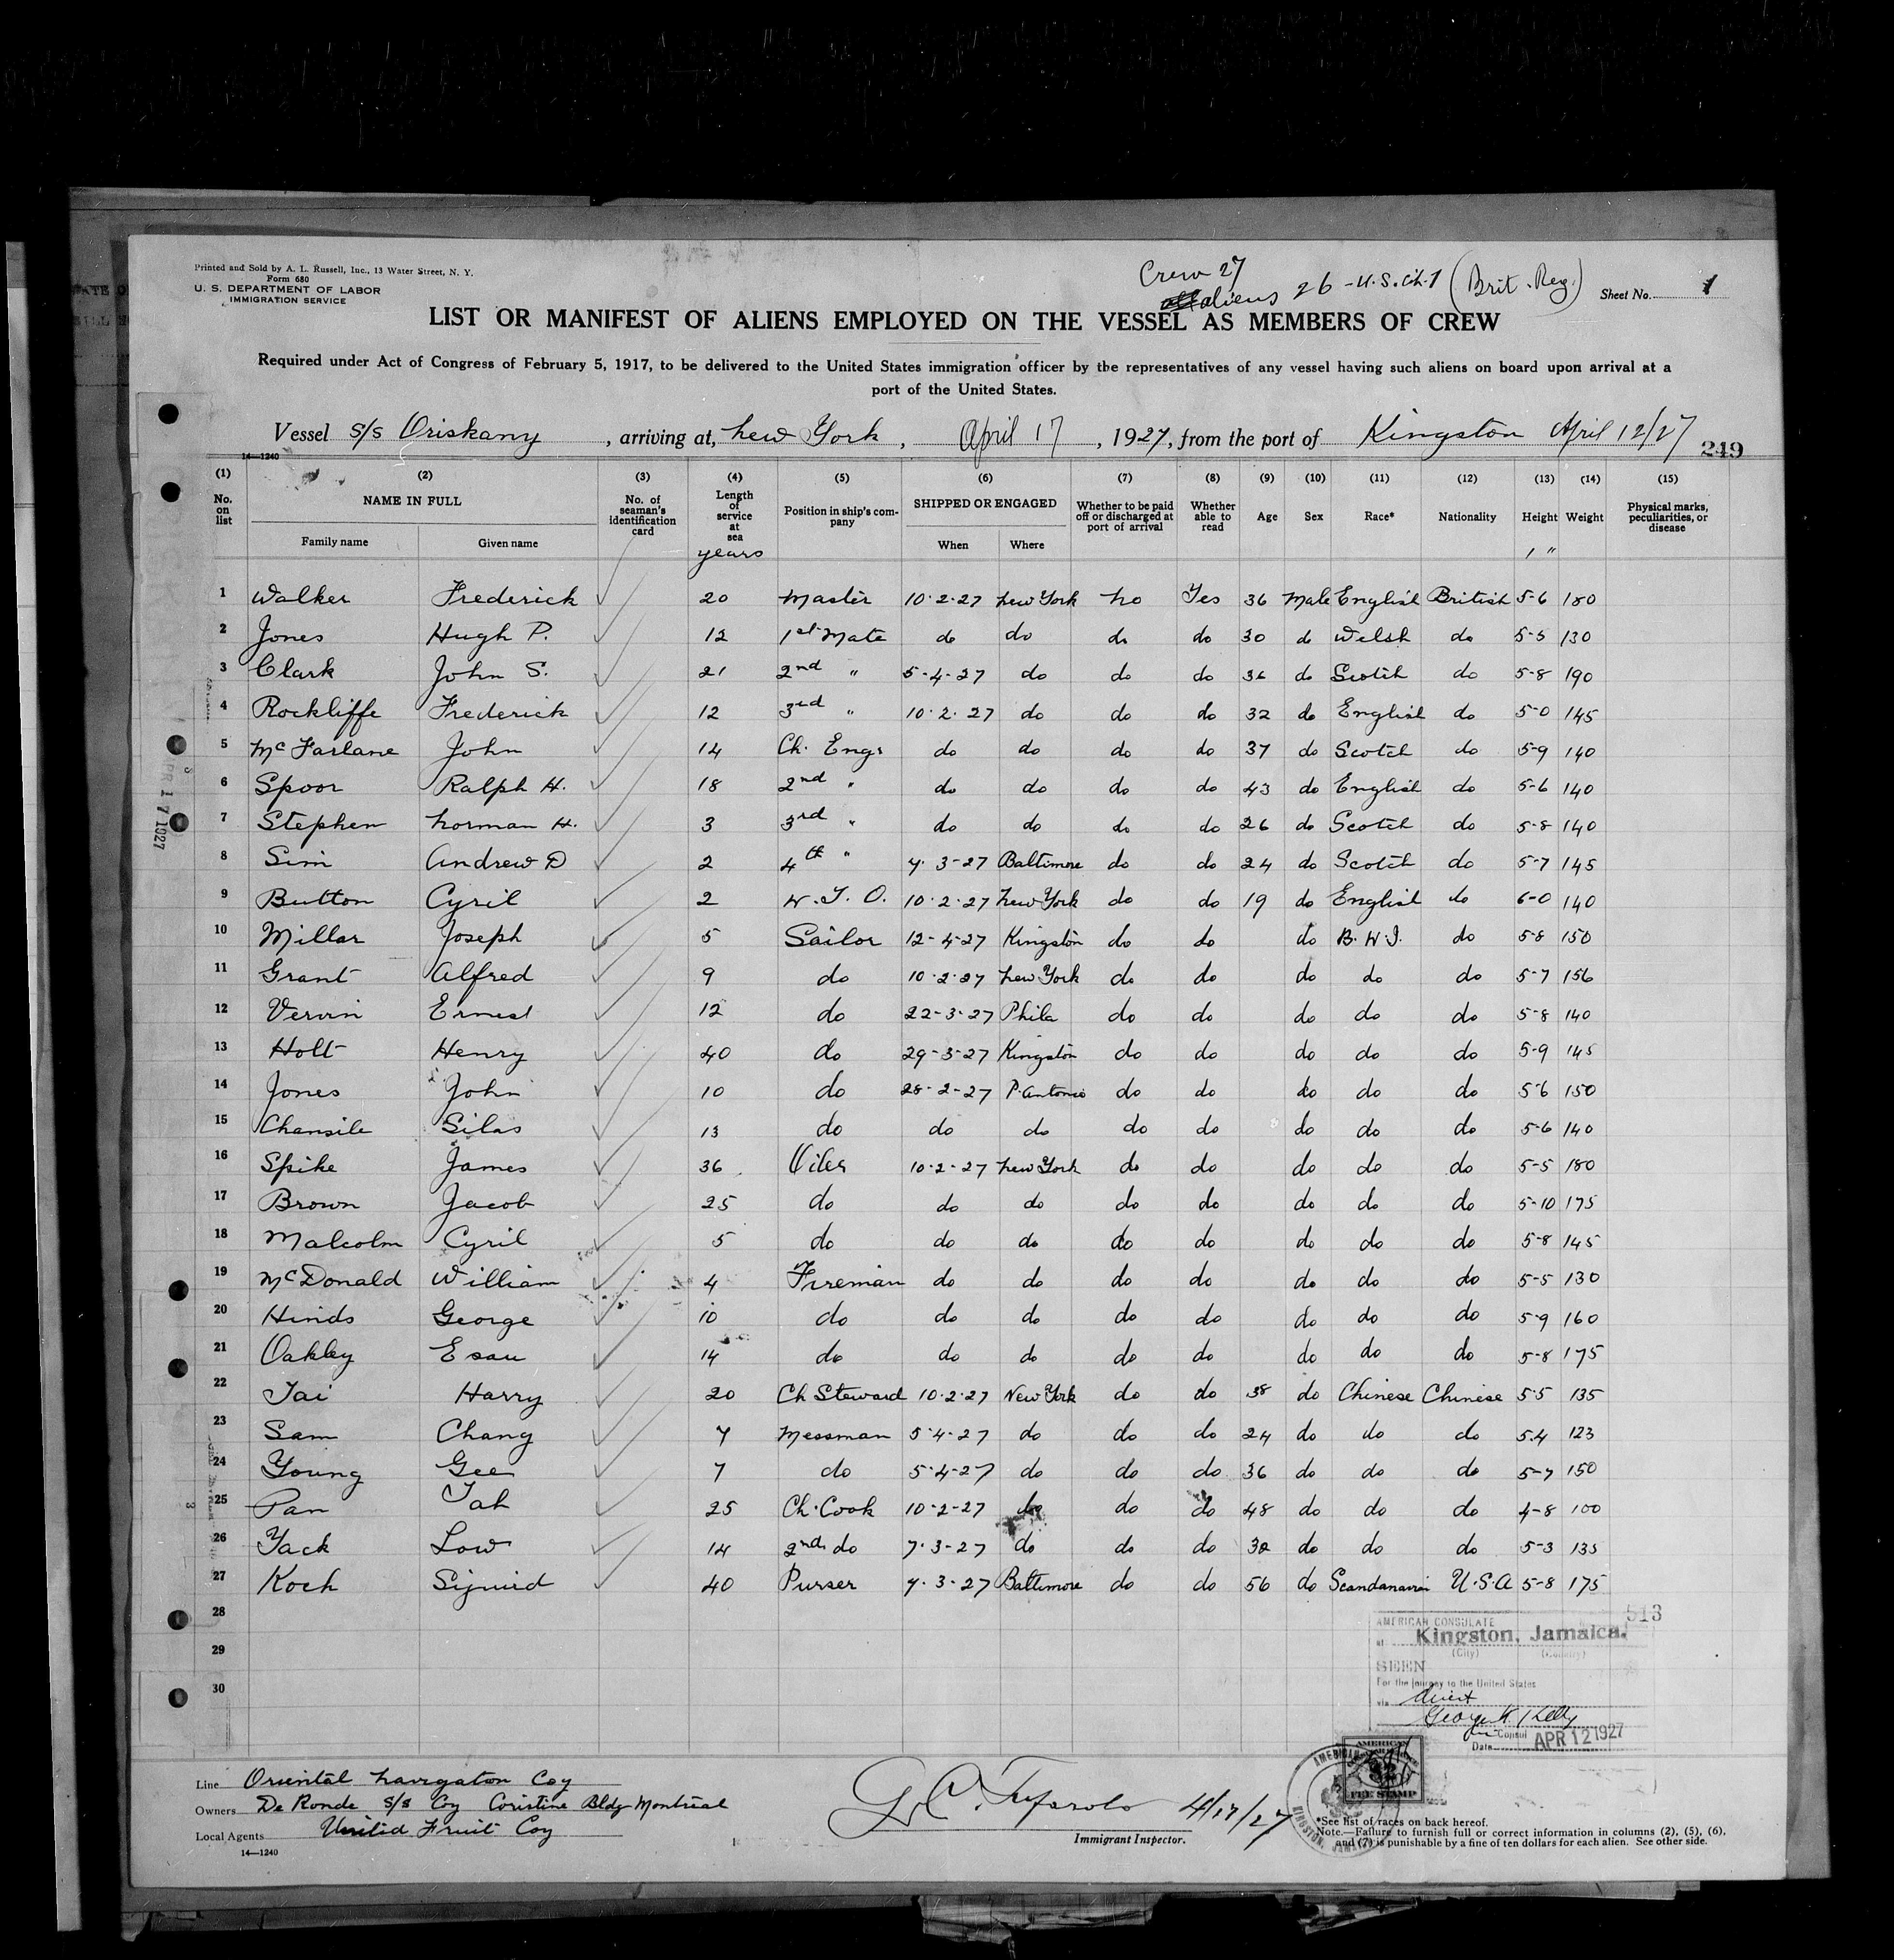 Printed and Sold by A. L. Russell, Inc., 13 Water Street, N. Y.
Form 680
U. S. DEPARTMENT OF LABOR
IMMIGRATION SERVICE
Crew 27
aliens 26 - U.S. Cit. 1 (Brit. Reg.)
Sheet No. 1
LIST OR MANIFEST OF ALIENS EMPLOYED ON THE VESSEL AS MEMBERS OF CREW
Required under Act of Congress of February 5, 1917, to be delivered to the United States immigration officer by the representatives of any vessel having such aliens on board upon arrival at a
port of the United States.
Vessel s/s Oriskany, arriving at, New York, April 17, 1927, from the port of Kingston April 12/27
14—1240
249
(1) (2) (3) (4) (5) (6) (7) (8) (9) (10) (11) (12) (13) (14) (15)
No. on list NAME IN FULL No. of seaman's identification card Length of service at sea Position in ship's company SHIPPED OR ENGAGED Whether to be paid off or discharged at port of arrival Whether able to read Age Sex Race* Nationality Height Weight Physical marks, peculiarities, or disease
Family name Given name years When Where ' "
1 Walker Frederick 20 Master 10-2-27 New York No Yes 36 Male English British 5-6 180
2 Jones Hugh P. 12 1st Mate do do do do 30 do Welsh do 5-5 130
3 Clark John S. 21 2nd " 5-4-27 do do do 36 do Scotch do 5-8 190
4 Rockliffe Frederick 12 3rd " 10-2-27 do do do 32 do English do 5-0 145
5 McFarlane John 14 Ch. Engr do do do do 37 do Scotch do 5-9 140
6 Spoor Ralph H. 18 2nd " do do do do 43 do English do 5-6 140
7 Stephen Norman H. 3 3rd " do do do do 26 do Scotch do 5-8 140
8 Sim Andrew D 2 4th " 7-3-27 Baltimore do do 24 do Scotch do 5-7 145
9 Button Cyril 2 W.T.O. 10-2-27 New York do do 19 do English do 6-0 140
10 Millar Joseph 5 Sailor 12-4-27 Kingston do do do B.W.I. do 5-8 150
11 Grant Alfred 9 do 10-2-27 New York do do do do do 5-7 156
12 Vervin Ernest 12 do 22-3-27 Phila do do do do do 5-8 140
13 Holt Henry 40 do 29-3-27 Kingston do do do do do 5-9 145
14 Jones John 10 do 28-2-27 P. Antonio do do do do do 5-6 150
15 Silas 13 do do do do do do do do 5-6 140
16 Spike James 36 Oiler 10-2-27 New York do do do do do 5-5 180
17 Brown Jacob 25 do do do do do do do do 5-10 175
18 Malcolm Cyril 5 do do do do do do do do 5-8 145
19 McDonald William 4 Fireman do do do do do do do 5-5 130
20 Hinds George 10 do do do do do do do do 5-9 160
21 Oakley Esau 14 do do do do do do do do 5-8 175
22 Tai Harry 20 Ch Steward 10-2-27 New York do do 38 do Chinese Chinese 5-5 135
23 Sam Chang 7 Messman 5-4-27 do do do 24 do do do 5-4 123
24 Young Gee 7 do 5-4-27 do do do 36 do do do 5-7 150
25 Pan Tah 25 Ch. Cook 10-2-27 do do do 48 do do do 4-8 100
26 Yack Low 14 2nd do 7-3-27 do do do 32 do do do 5-3 135
27 Koch Sigurd 40 Purser 7-3-27 Baltimore do do 56 do Scandanavian U.S.A 5-8 175
28
29
30
513
AMERICAN CONSULATE
at Kingston, Jamaica.
(City) (Country)
SEEN
For the journey to the United States
via direct
George Kelly
Consul
Date APR 12 1927
AMERICAN
FEE STAMP
Line Oriental Navigation Coy
Owners De Ronde s/s Coy Coristine Bldg Montreal
Local Agents United Fruit Coy
14—1240
4/17/27
Immigrant Inspector.
*See list of races on back hereof.
Note.—Failure to furnish full or correct information in columns (2), (5), (6),
and (7) is punishable by a fine of ten dollars for each alien. See other side.
APR 17 1927